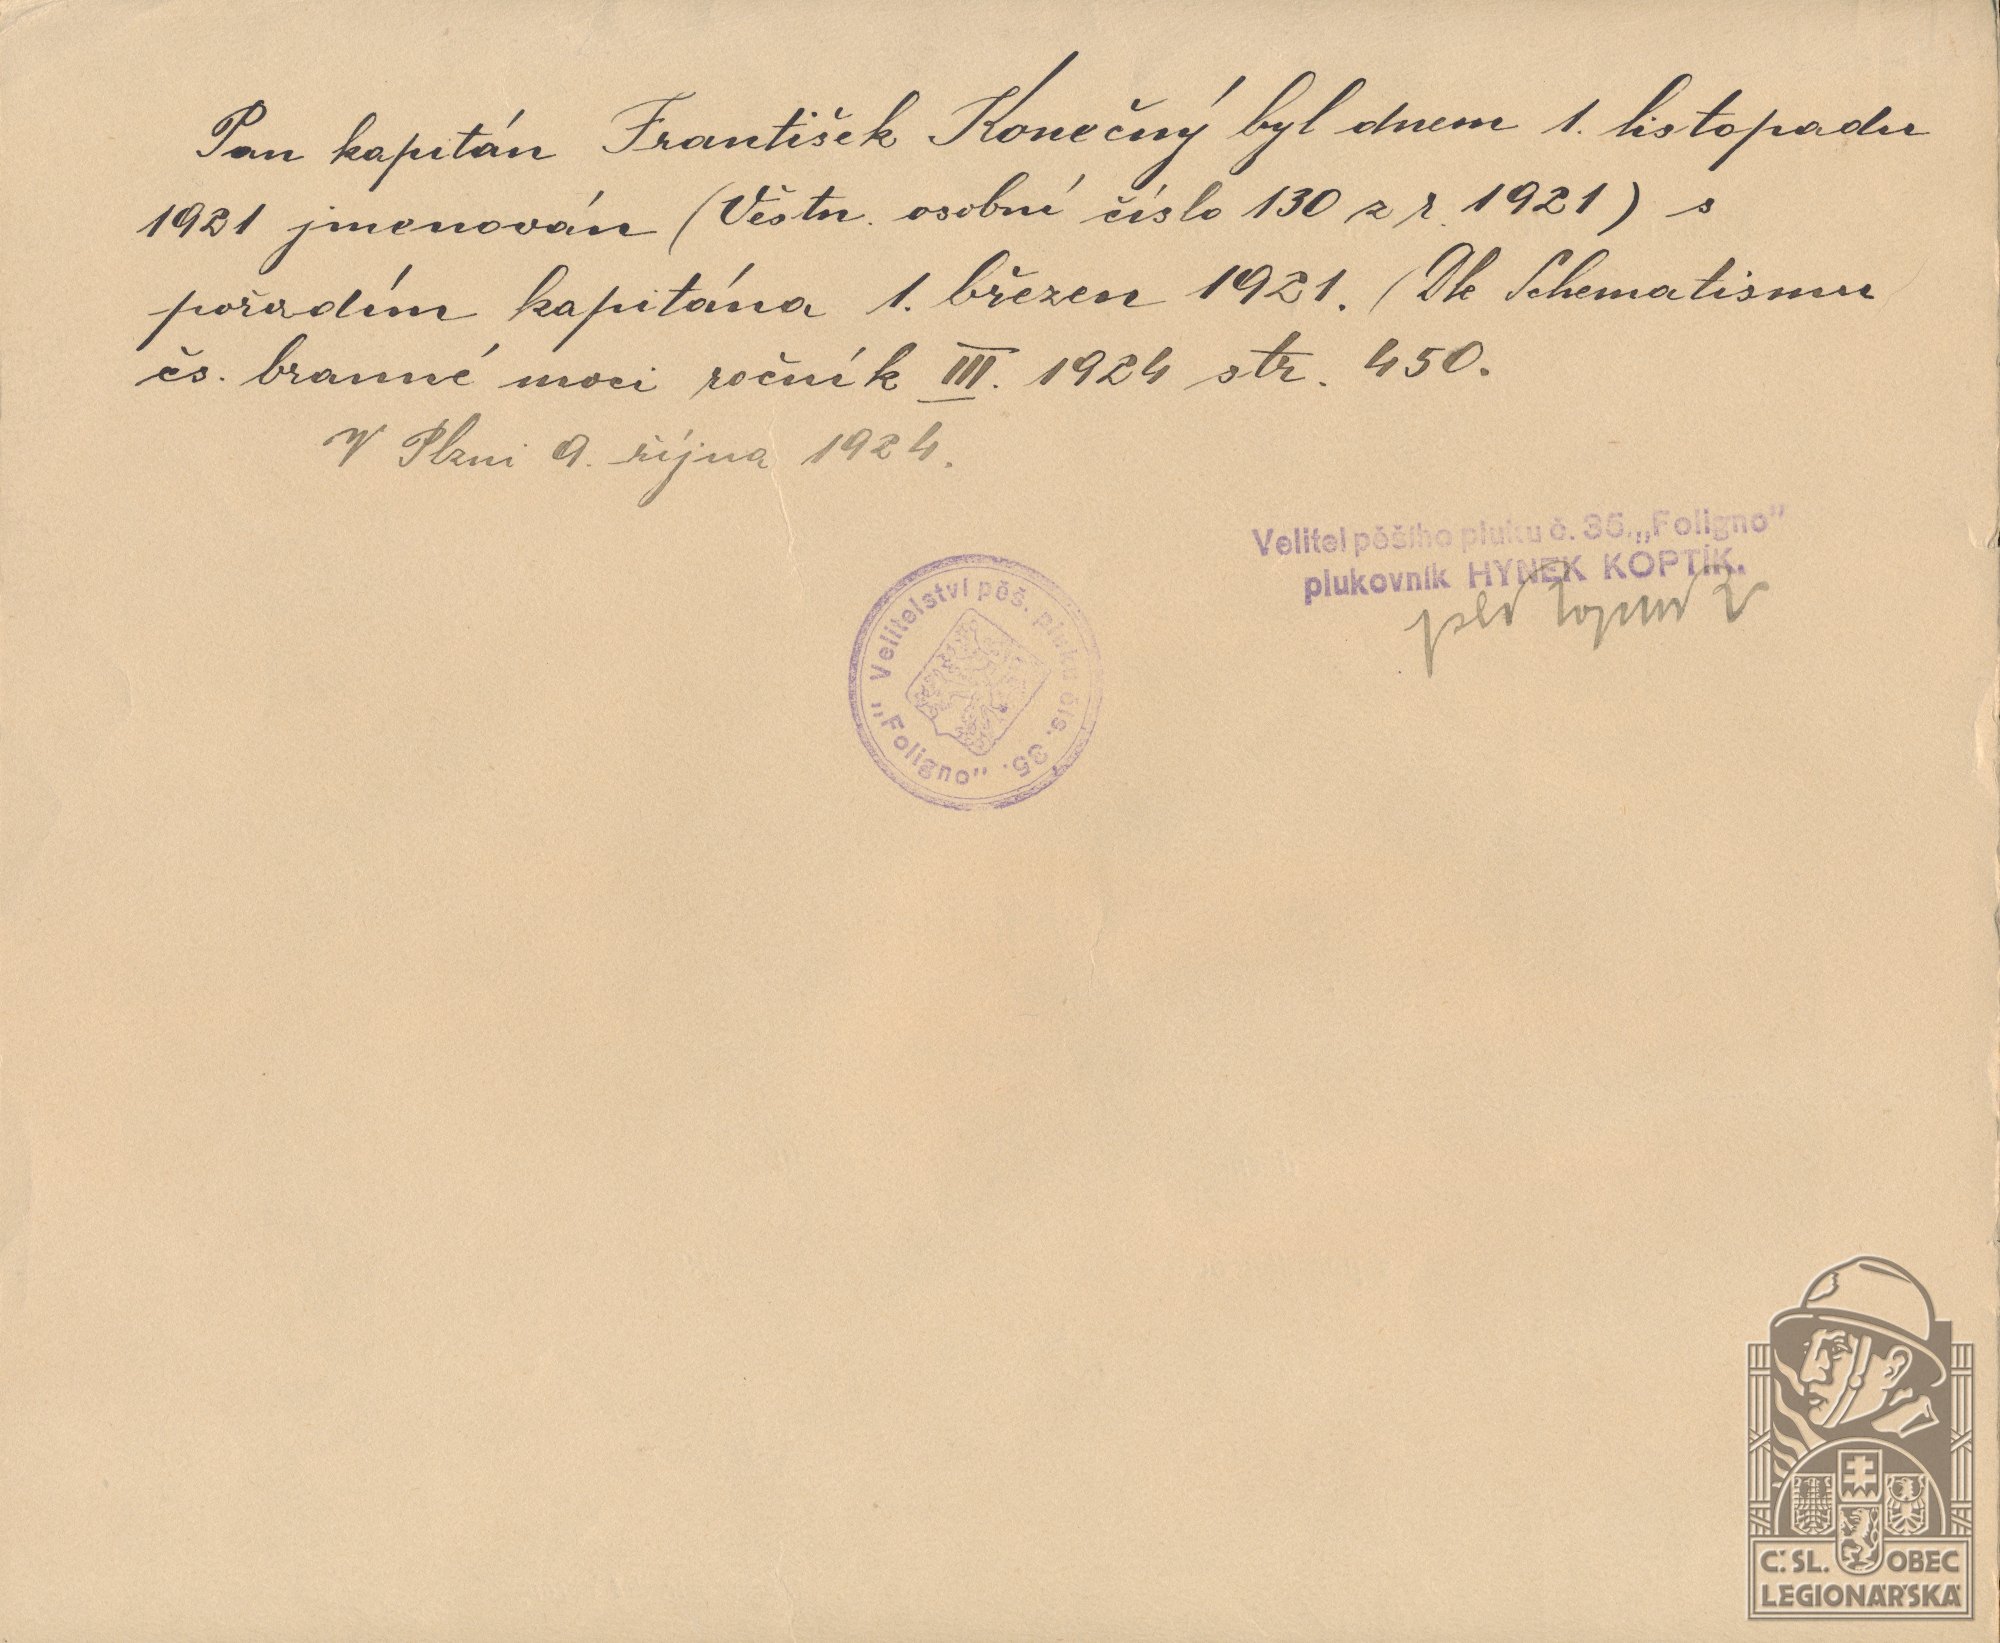 Pan kapitán František Konečný byl dnem 1. listopadu
1921 jmenován (Věstn. osobní číslo 130 z r. 1921) s
pořadím kapitána 1. březen 1921. (Dle Schematismu
čs. branné moci ročník III. 1924 str. 450.
V Plzni 9. října 1924.
Velitel pěšího pluku č. 35 „Foligno"
plukovník HYNEK KOPTÍK.
Velitelství pěš. pluku čís. 35. „Foligno"
Č. SL. OBEC
LEGIONÁŘSKÁ